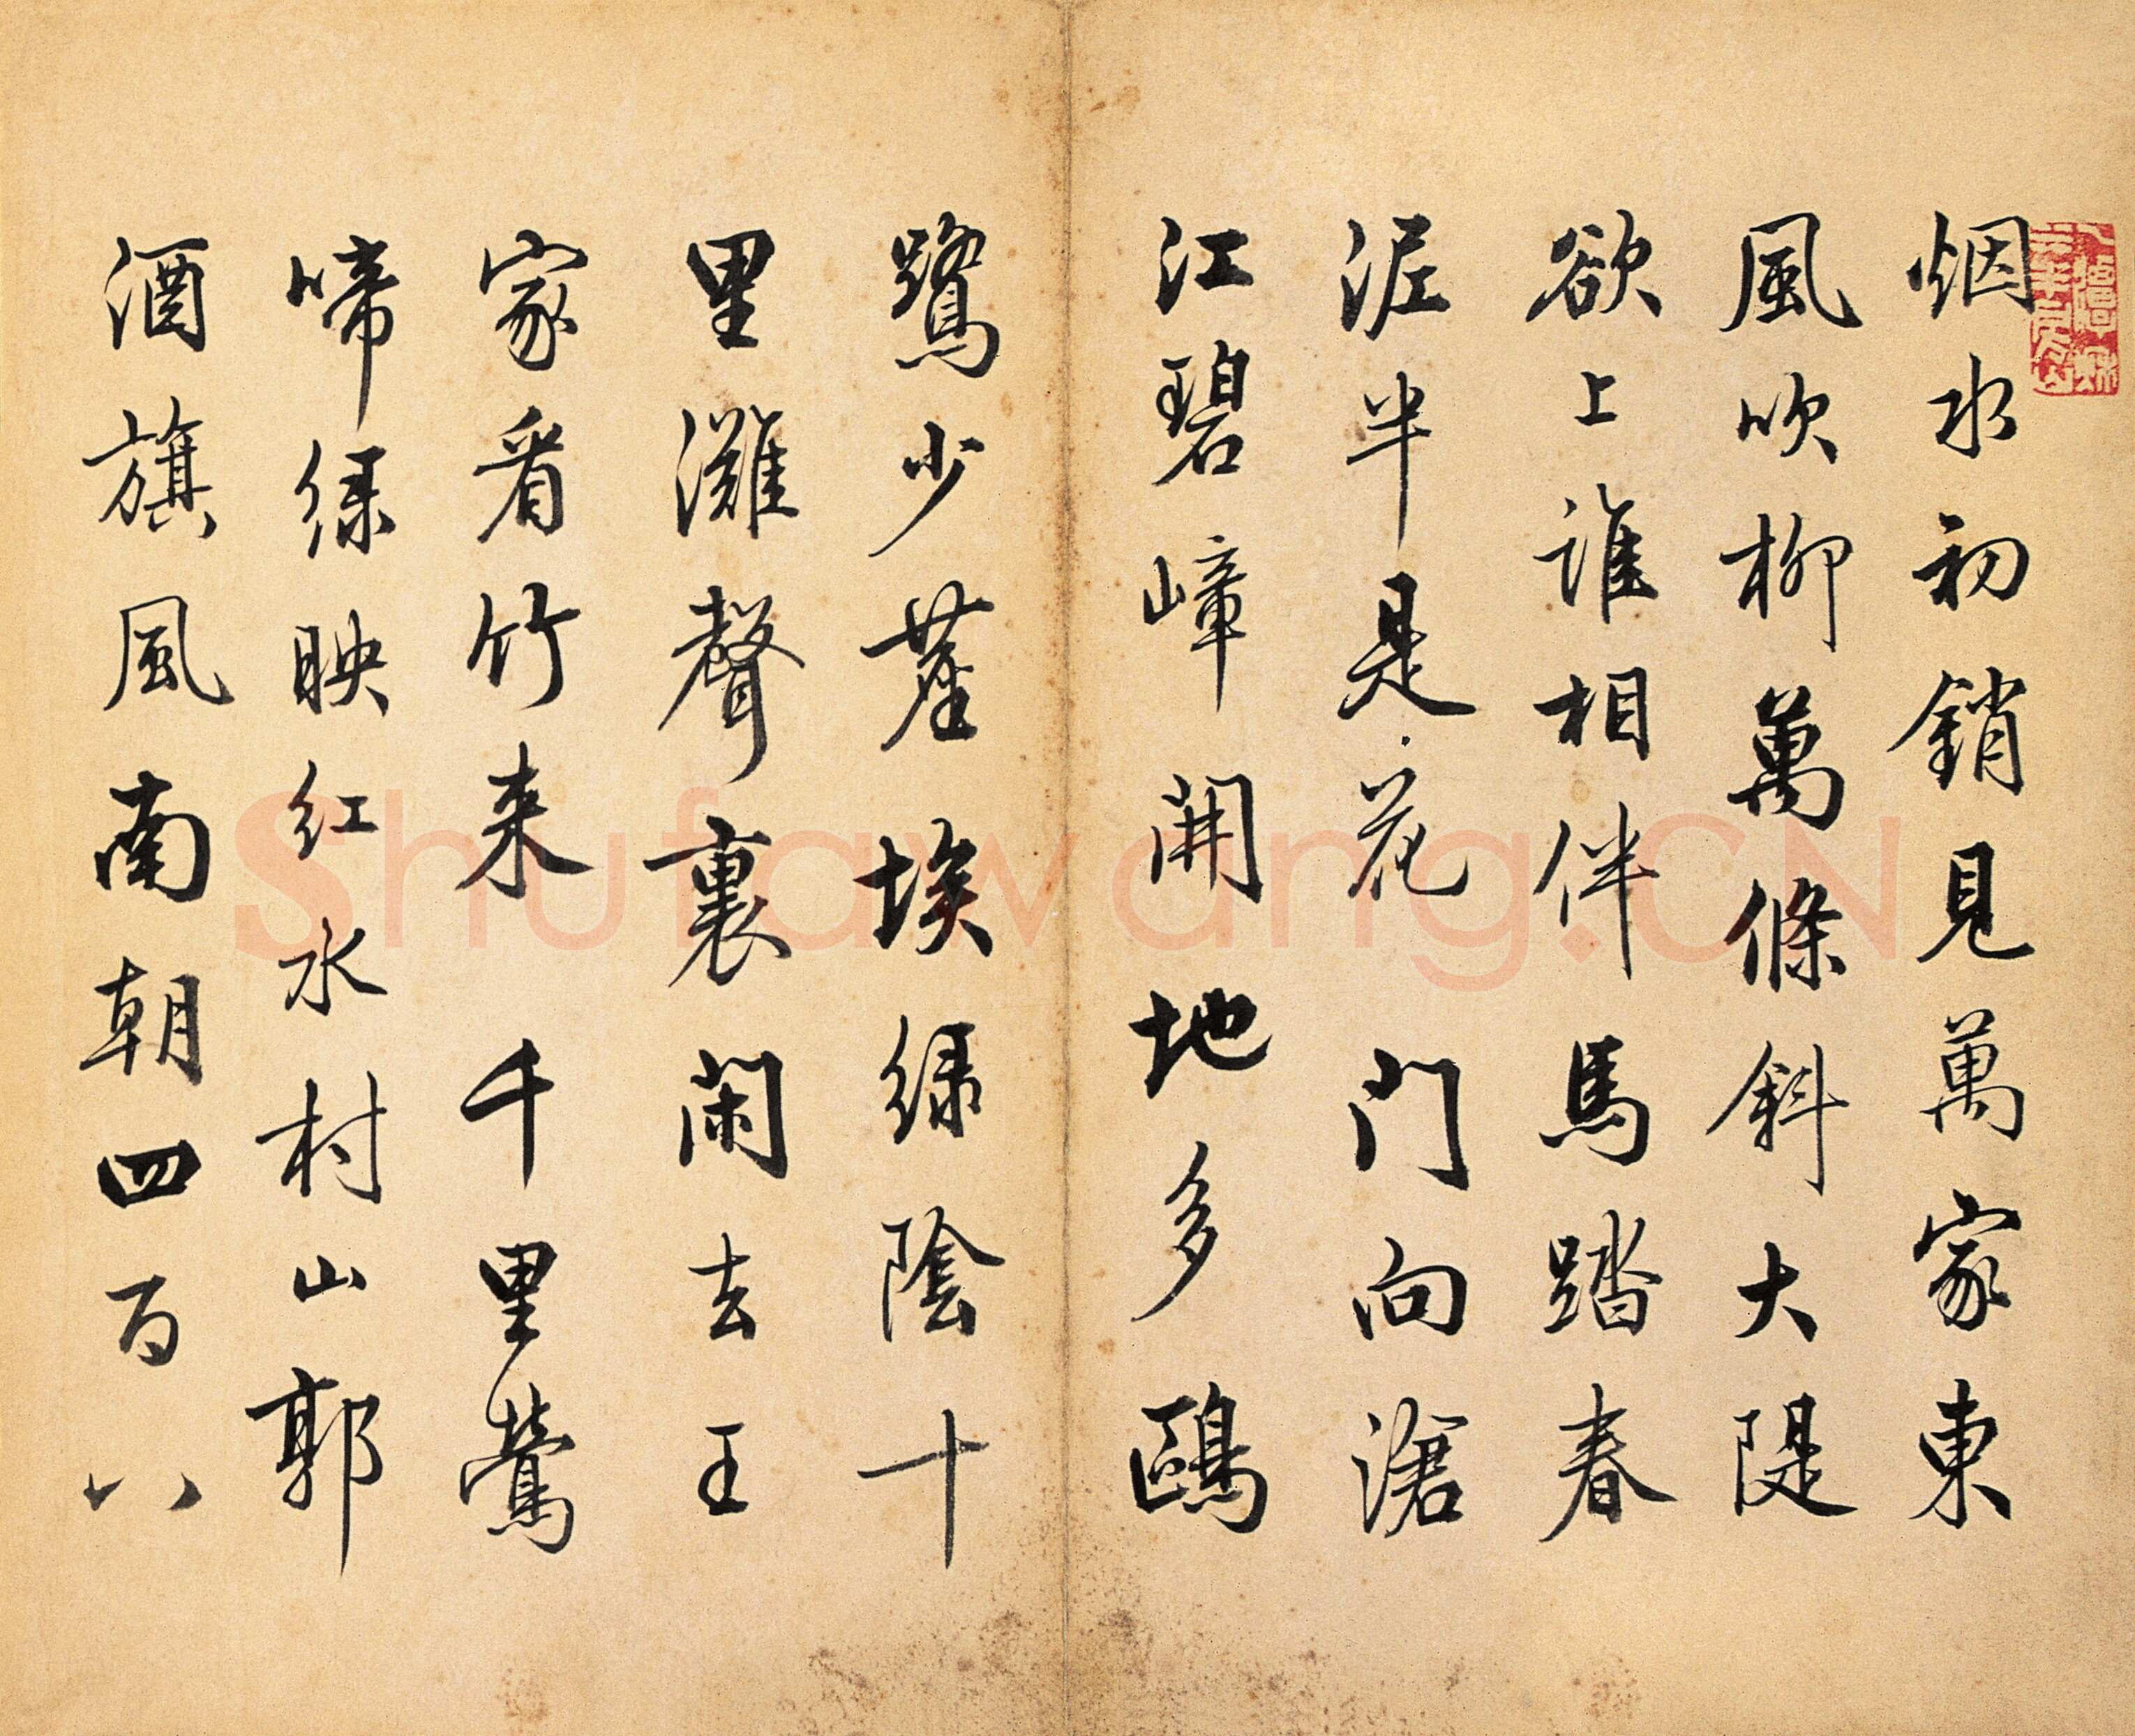 烟水初銷見萬家東
風吹柳萬條斜大隄
欲上誰相伴馬踏春
泥半是花門向滄
江碧嶂開地多鷗
鷺少塵埃綠陰十
里灘聲裏閑去王
家看竹来千里鶯
啼綠映紅水村山郭
酒旗風南朝四百八
Shufawang.CN